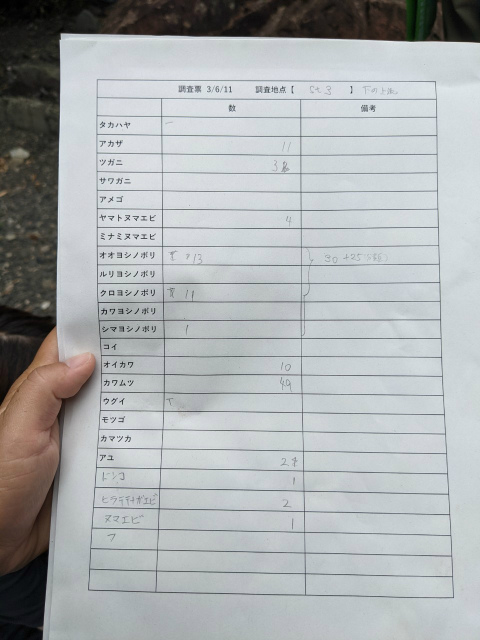 調査票 3/6/11 調査地点【 St 3 】 下の上流
数 備考
タカハヤ 一
アカザ 11
ツガニ 3
サワガニ
アメゴ
ヤマトヌマエビ 4
ミナミヌマエビ
オオヨシノボリ 13 30+25
ルリヨシノボリ
クロヨシノボリ 11
カワヨシノボリ
シマヨシノボリ 1
コイ
オイカワ 10
カワムツ 49
ウグイ 丅
モツゴ
カマツカ
アユ
ドンコ 1
ヒラテテナガエビ 2
ヌマエビ 1
フ